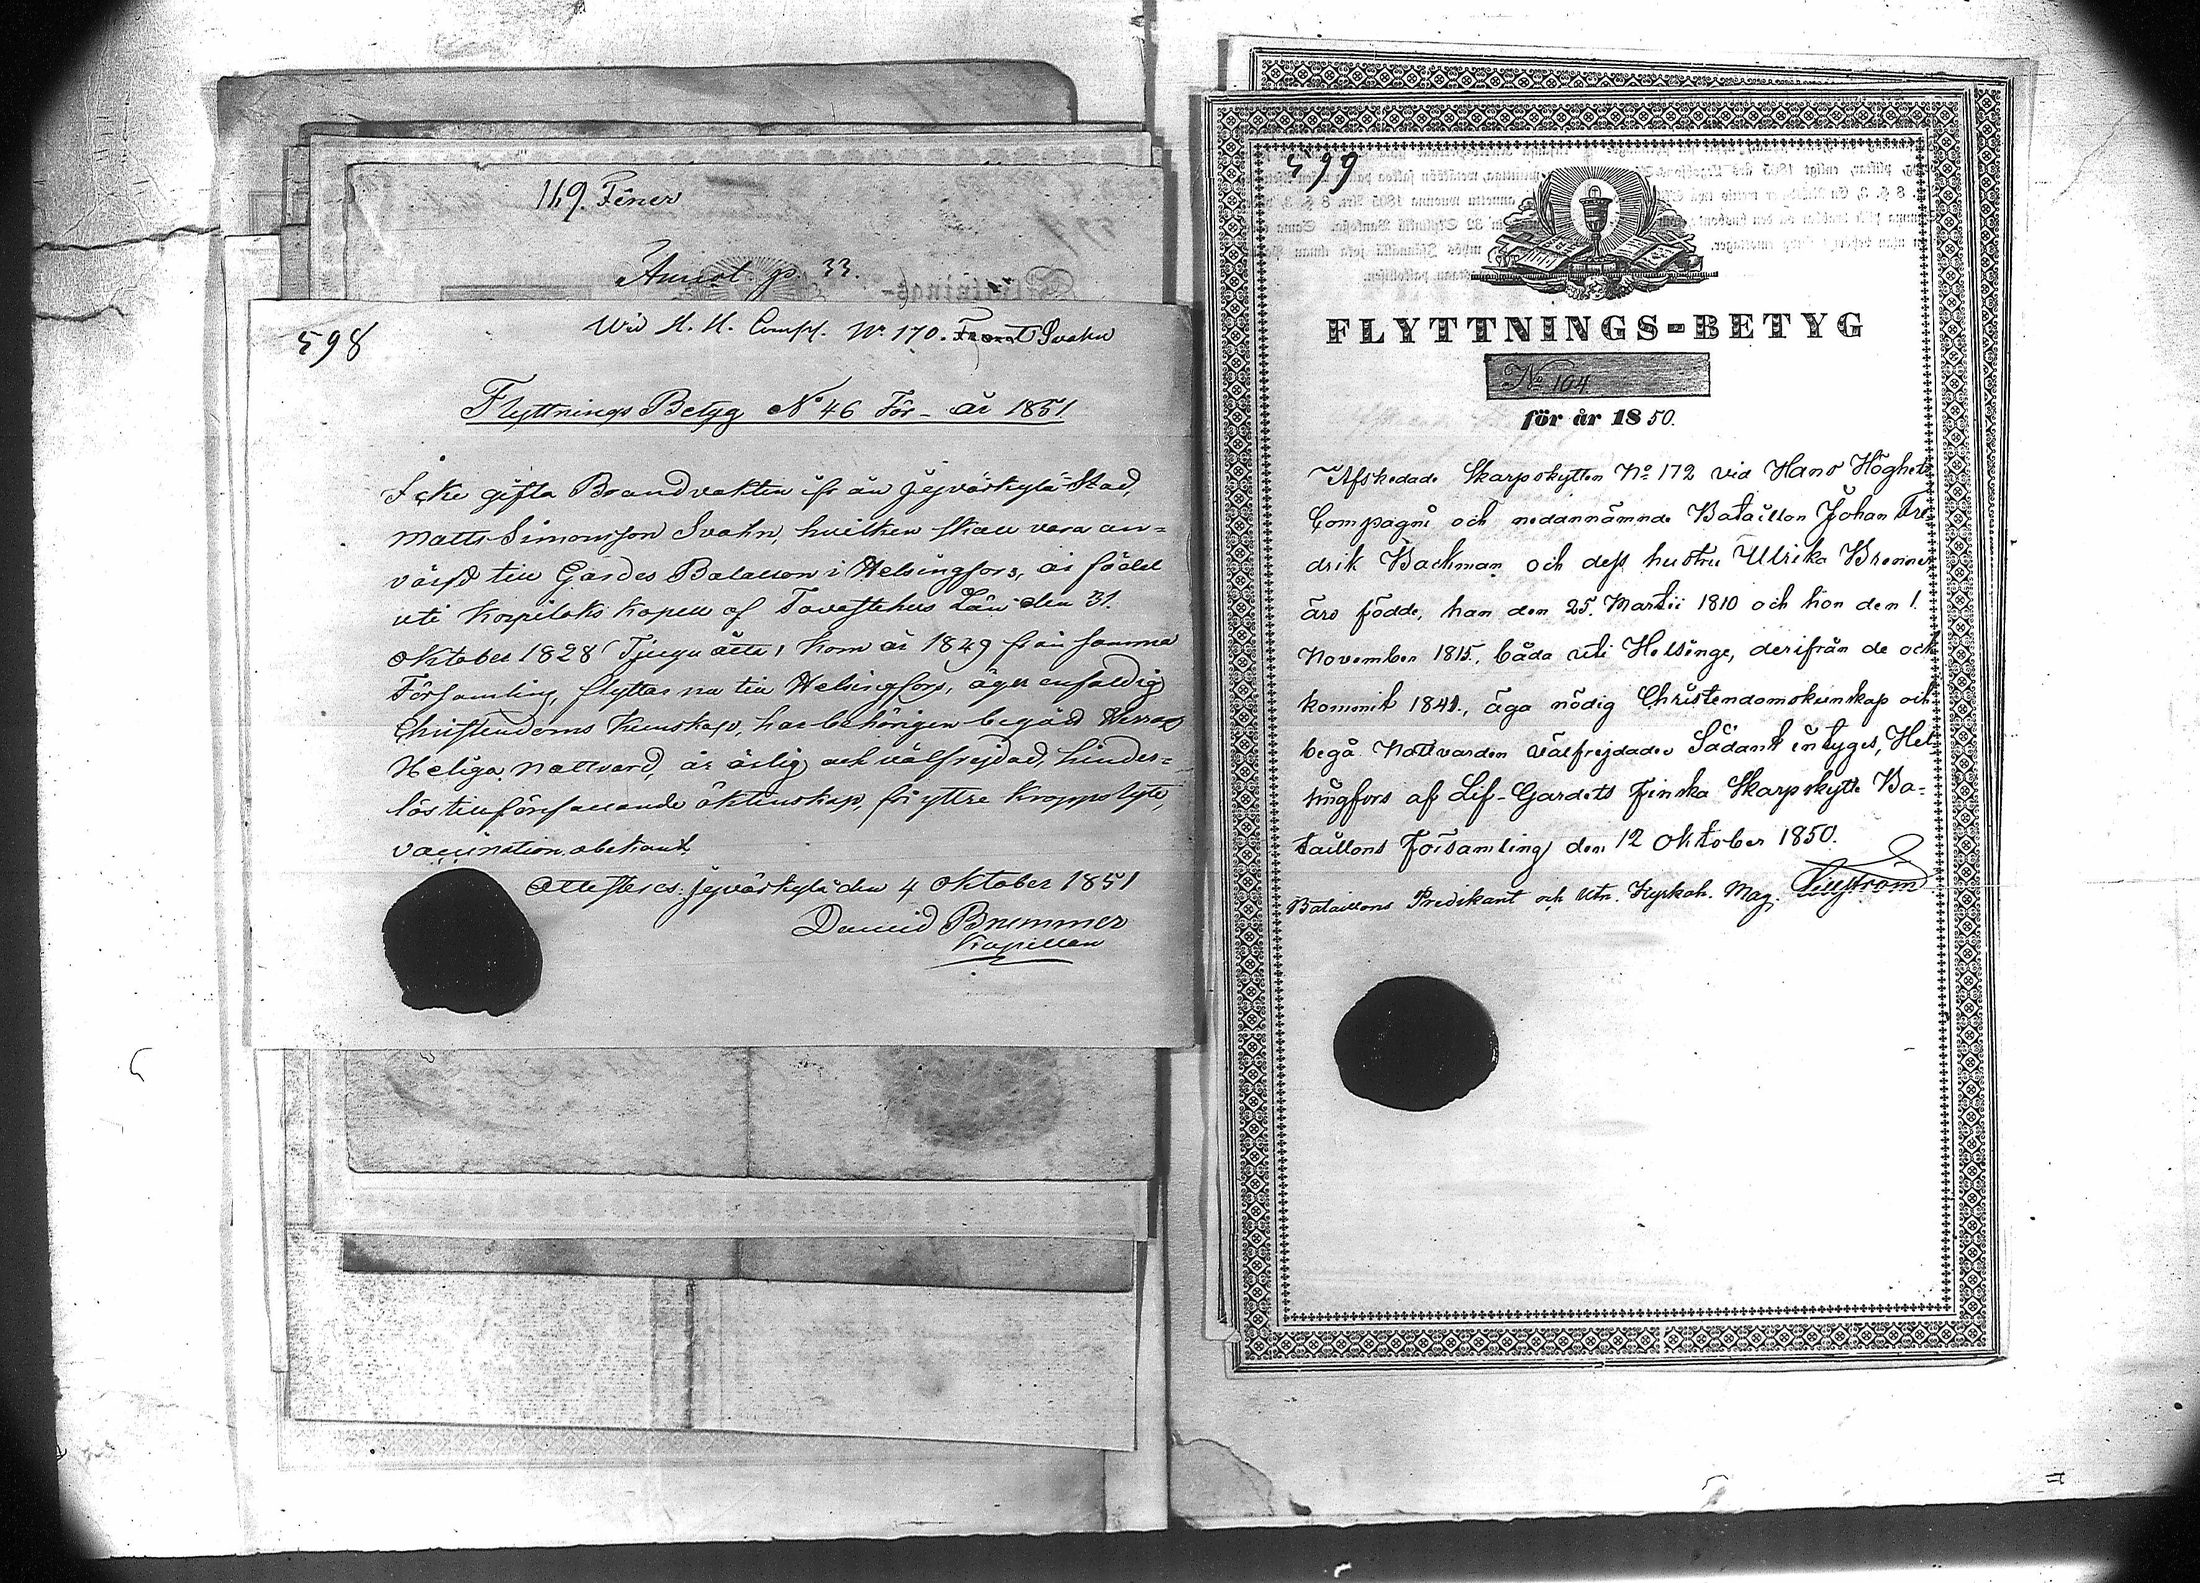 119. Fèner
Annot. p. 33.
598
Wid H. H. Comp. No 170. Svahn
Flyttnings Betyg No 46 För år 1851.
Icke gifta Brandvakten från Jyväskylä Stad,
Matts Simonsson Svahn, hvilken skall vara an-
värfd till Gardes Bataillon i Helsingfors, är född
uti Korpilaks Kapell af Tavastehus Län den 31.
Oktober 1828 (Tjugu åtta) kom år 1849 från samma
Församling, flyttar nu till Helsingfors, äger enfaldig
Christendoms Kunskap, har behörigen begådt Herrans
Heliga Nattvard, är ärlig och välfrejdad, hinder-
lös till förefallande äktenskap, fri yttre kroppslyte
vaccination obekant.
Attesteras. Jyväskylä den 4 Oktober 1851
Daniel Brummer
Kapellan
599
FLYTTNINGS-BETYG
No 104
för år 1850.
Afskedade Skarpskytten No 172 vid Hans Höghets
Compagni och nedannämnde Bataillon Johan Fre-
drik Backman och dess hustru Ulrika Brenner
äro födde, han den 25. Martii 1810 och hon den 1.
November 1815, båda uti Helsinge, derifrån de och
kommit 1841., äga nödig Christendomskunskap och
begå Nattvarden välfrejdade. Sådant intyges, Hel-
singfors af Lif-Gardets Finska Skarpskytte Ba-
taillons Församling den 12 Oktober 1850.
Bataillons Predikant och Utn. Kyrkoh. Mag.